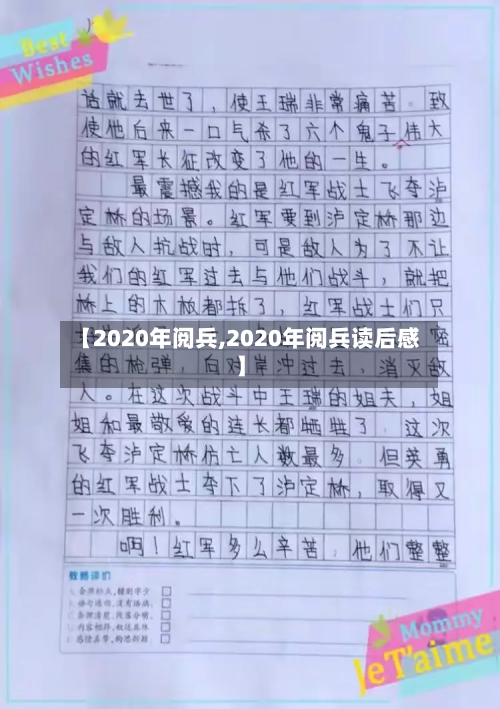 Best
Wishes
话就去世了，使王瑞非常痛苦。致
使他后来一口气杀了六个鬼子,伟大
的红军长征改变了他的一生。
最震撼我的是红军战士飞夺泸
定桥的场景。红军要到泸定桥那边
与敌人抗战时，可是敌人为了不让
我们的红军过去与他们战斗，就把
桥上的木板都拆了，红军战士们只
【2020年阅兵,2020年阅兵读后感
】
集的枪弹，向对岸冲过去，消灭敌
人。在这次战斗中王瑞的姐夫，姐
姐和最敬爱的连长都牺牲了，这次
飞夺泸定桥伤亡人数最多。但英勇
的红军战士夺下了泸定桥，取得又
一次胜利。
啊！红军多么辛苦，他们整整
教师评价
Mommy
JeT'aime